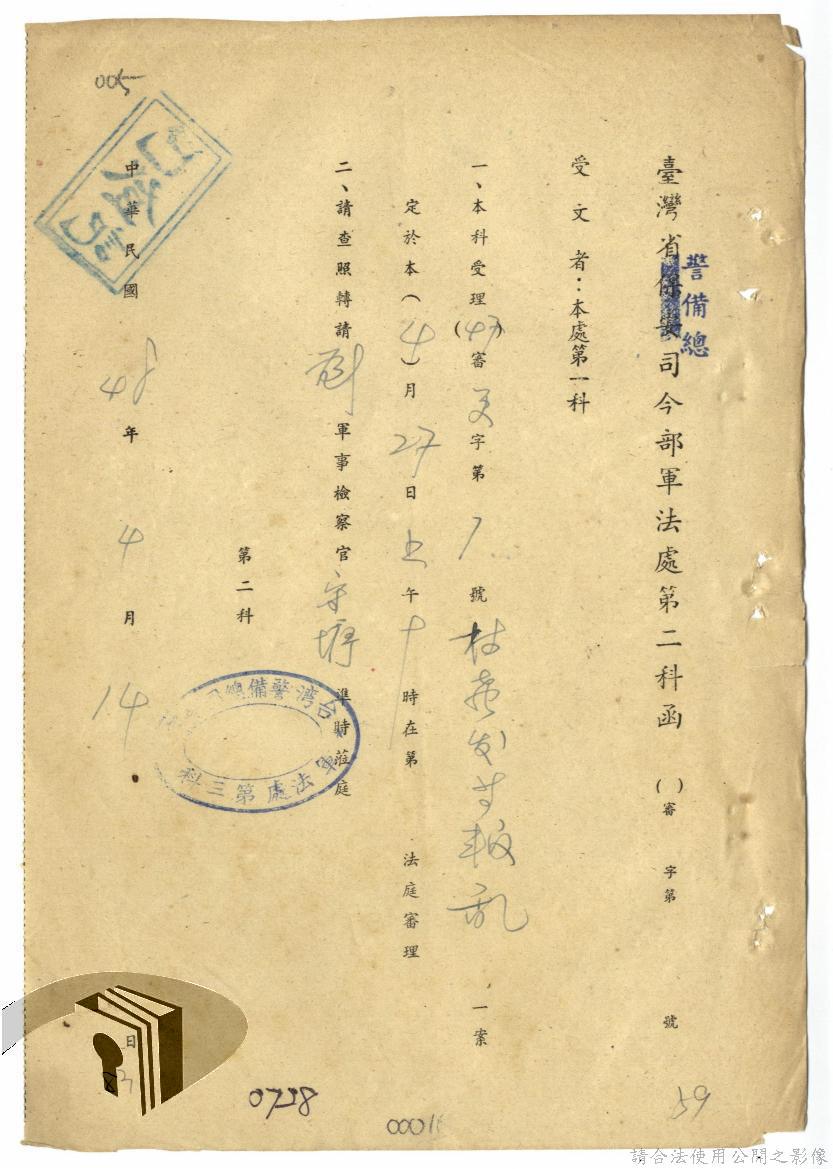 005
臺灣省警備總司令部軍法處第二科函 ( )審 字第 號
受文者：本處第一科
一、本科受理(47)審 字第 號 叛亂 一案
定於本(4)月27日上午十時在第 法庭審理
二、請查照轉請 軍事檢察官 準時蒞庭
第二科
台灣警備總
軍法處第三科
中華民國 48年4月14日
0728
00016
59
請合法使用公開之影像